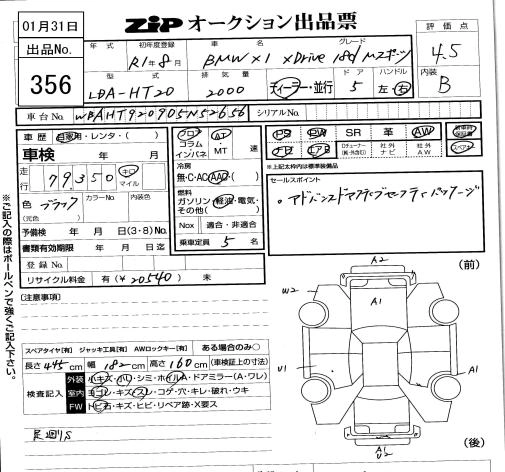 01月31日
出品No.
356
ZIP オークション出品票
評価点
4.5
内装
B
年式 初年度登録 車名 グレード
R1年8月 BMW X1 xDrive 18d Mスポーツ
型式 排気量 ドア ハンドル
LDA-HT20 2000 ディーラー・並行 5 左・右
車台No. WBAHT920905N52656 シリアルNo.
車歴 自家用・レンタ・( )
車検 年 月
走行 79,350 キロ マイル
色 ブラック (元色) カラーNo. 内装色
予備検 年 月 日(3・8)No.
書類有効期限 年 月 日迄
登録No.
リサイクル料金 有(¥ 20540 ) 未
フロア コラム インパネ AT MT 速
冷房 無・C・AC・AAC( )
燃料 ガソリン・軽油・電気・その他( )
Nox 適合・非適合
乗車定員 5 名
PS PW SR 革 AW
エアB 社外ナビ 社外AW スペアキー
※上記太枠内は標準装備品
セールスポイント
。アドバンスドアクティブセーフティパッケージ
[注意事項]
スペアタイヤ[有] ジャッキ工具[有] AWロックキー[有] ある場合のみ○
長さ 445 cm 幅 182 cm 高さ 160 cm (車検証上の寸法)
検査記入
外装 小キズ・小U・シミ・ホイルA・ドアミラー(A・ワレ)
室内 ヨゴレ・キズ・スレ・コゲ・穴・キレ・破れ・ウキ
FW トビ石・キズ・ヒビ・リペア跡・X要ス
足廻りS
(前)
A2
W2
A1
U1
A1
A2
U2
(後)
※ご記入の際はボールペンで強くご記入下さい。